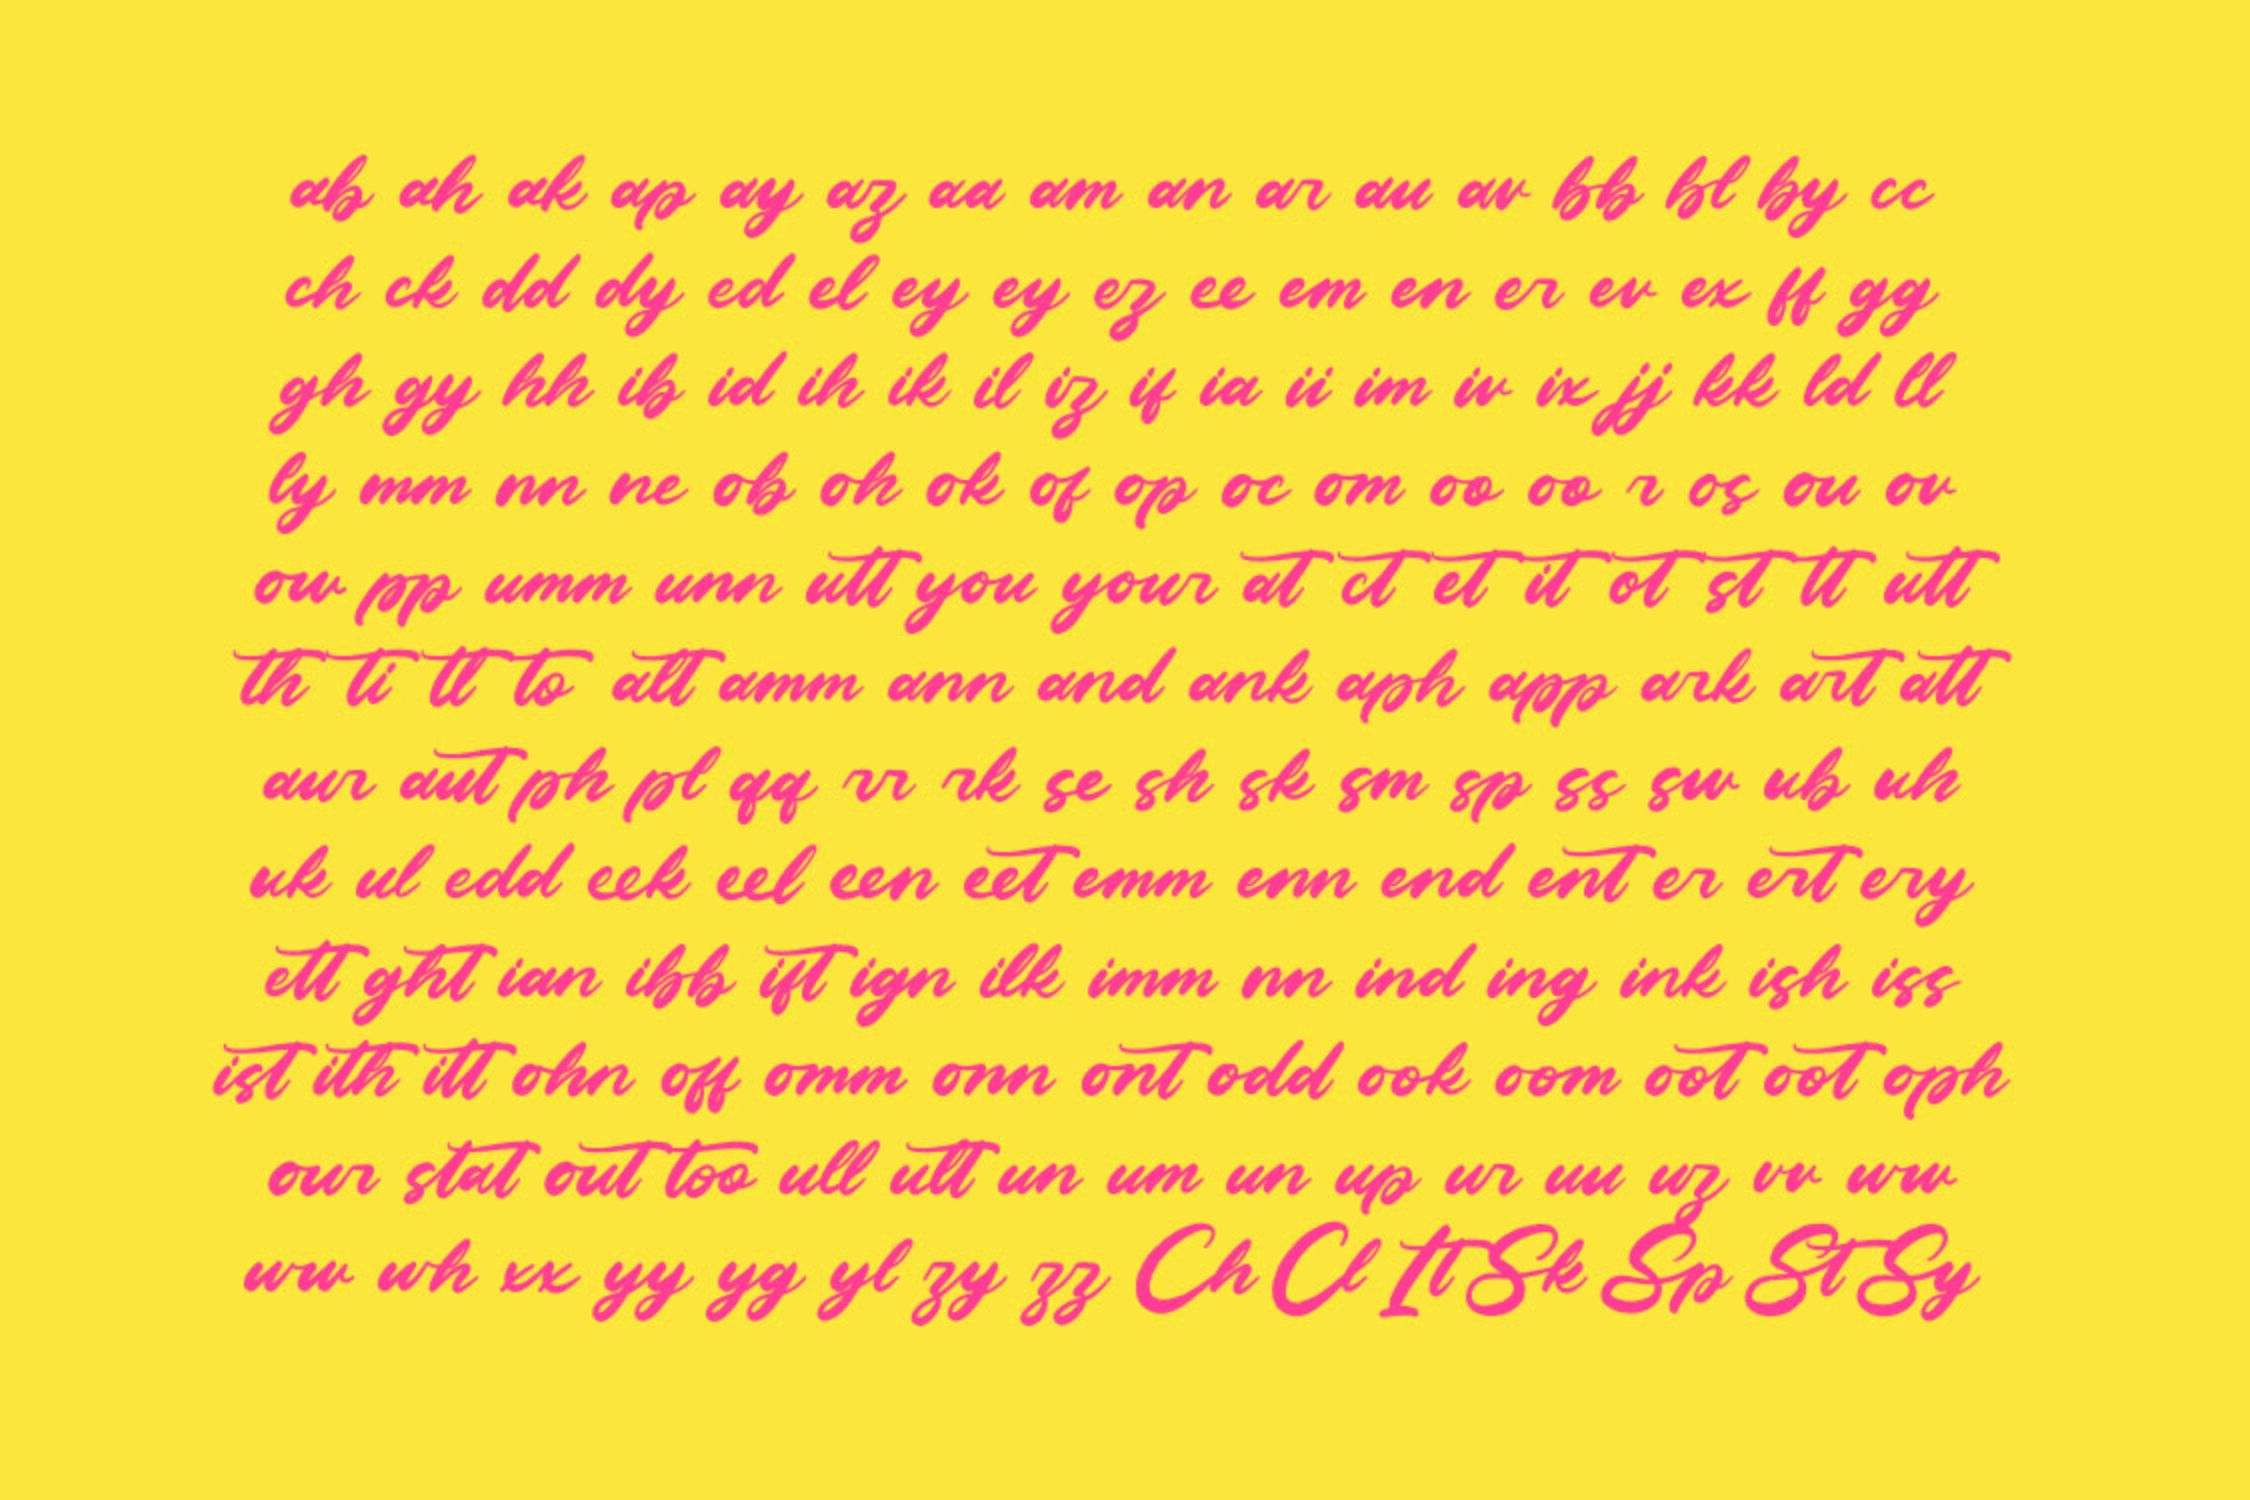 ab ah ak ap ay az aa am an ar au av bb bl by cc
ch ck dd dy ed el ey ey ez ee em en er ev ex ff gg
gh gy hh ib id ih ik il iz if ia ii im iv ix jj kk ld ll
ly mm nn ne ob oh ok of op oc om oo oo r os ou ov
ow pp umm unn utt you your at ct et it ot st tt utt
th ti tl to alt amm ann and ank aph app ark art att
aur aut ph pl qq rr rk se sh sk sm sp ss sw ub uh
uk ul edd eek eel een eet emm enn end ent er ert ery
ett ght ian ibb ift ign ilk imm nn ind ing ink ish iss
ist ith itt ohn off omm onn ont odd ook oom oot oot oph
our stat out too ull ult un um un up ur uu uz vv ww
ww wh xx yy yg yl zy zz Ch Cl It Sk Sp St Sy